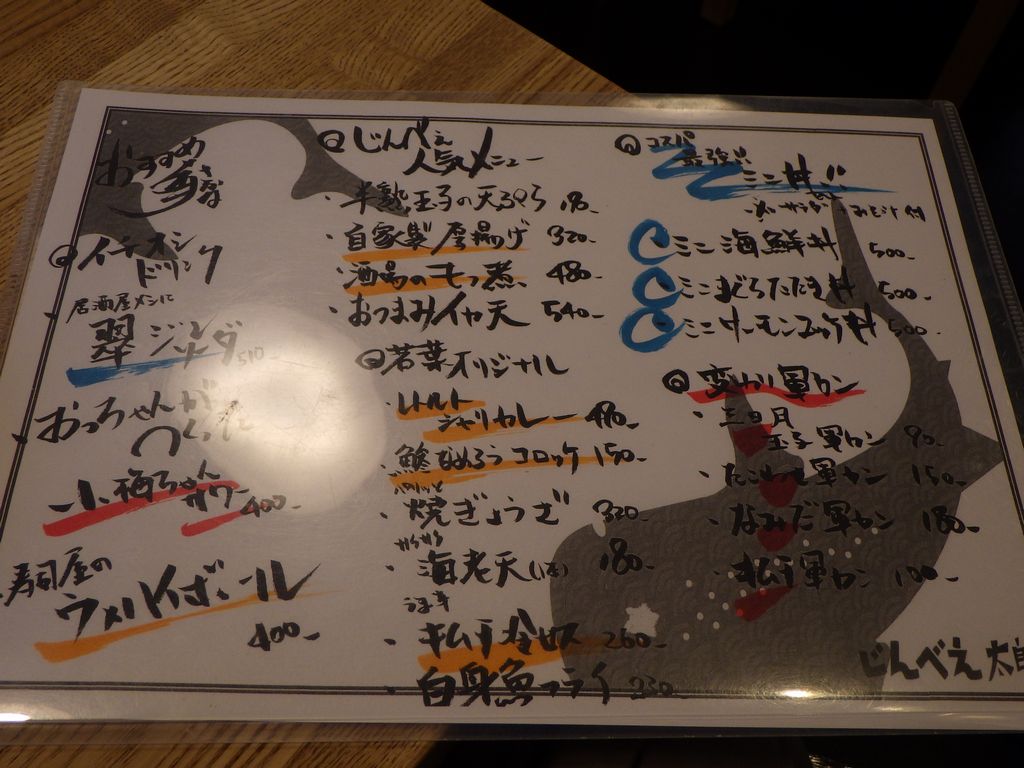 おすすめ
◎イチオシ
ドリンク
・居酒屋メシに
翠ジン
ソーダ 510
・おっちゃんが
つくった
小梅ちゃん
サワー 400-
・寿司屋の
ウメハイボール
400-
◎じんべえ
人気メニュー
・半熟玉子の天ぷら 190-
・自家製厚揚げ 320-
・酒場のもつ煮 480-
・おつまみイカ天 540-
◎若葉オリジナル
・レトルト
シャリカレー 480-
・鯵なめろうコロッケ 150-
・焼ぎょうざ 320-
・海老天(1本) 180-
うま辛
・キムチ 260-
・白身魚フライ 230-
◎コスパ
最強!!
ミニ丼!!
ミニ海鮮丼 500-
ミニまぐろたたき丼 500-
ミニサーモンユッケ丼 500-
◎変わり軍カン
・三日月
玉子軍カン 90-
・たこわさ軍カン 150-
・なみだ軍カン 180-
・キムチ軍カン 100-
じんべえ太郎